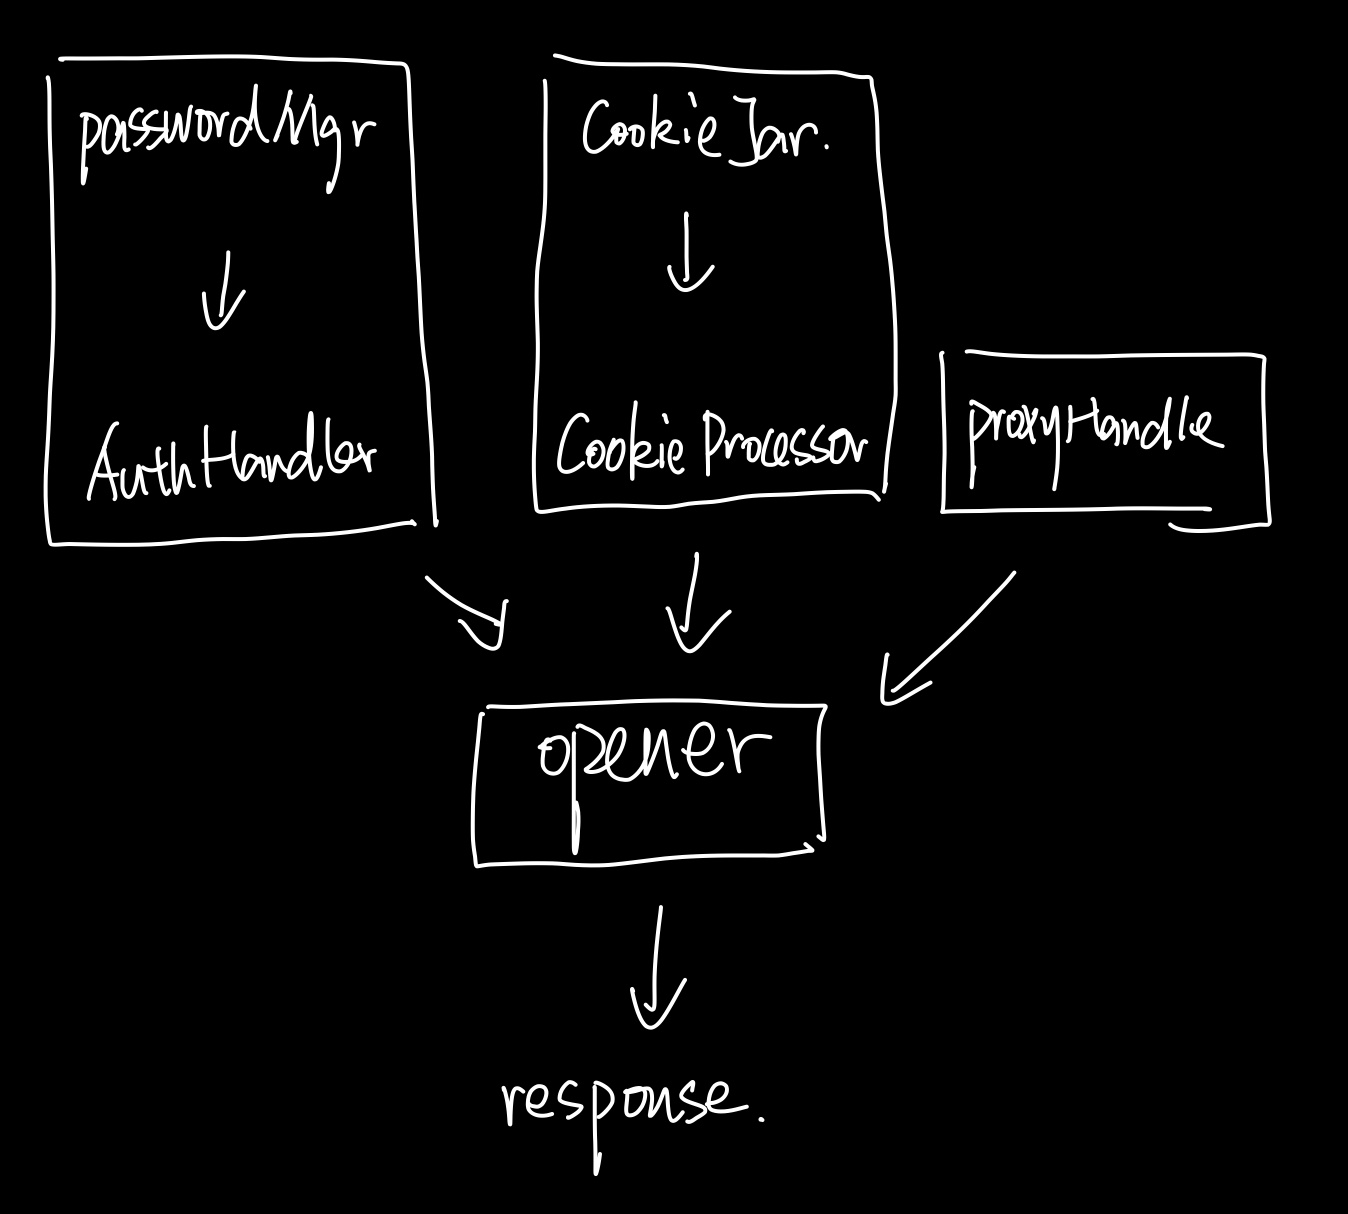 passwordMgr
AuthHandler
CookieJar.
CookieProcessor
proxyHandle
opener
response.